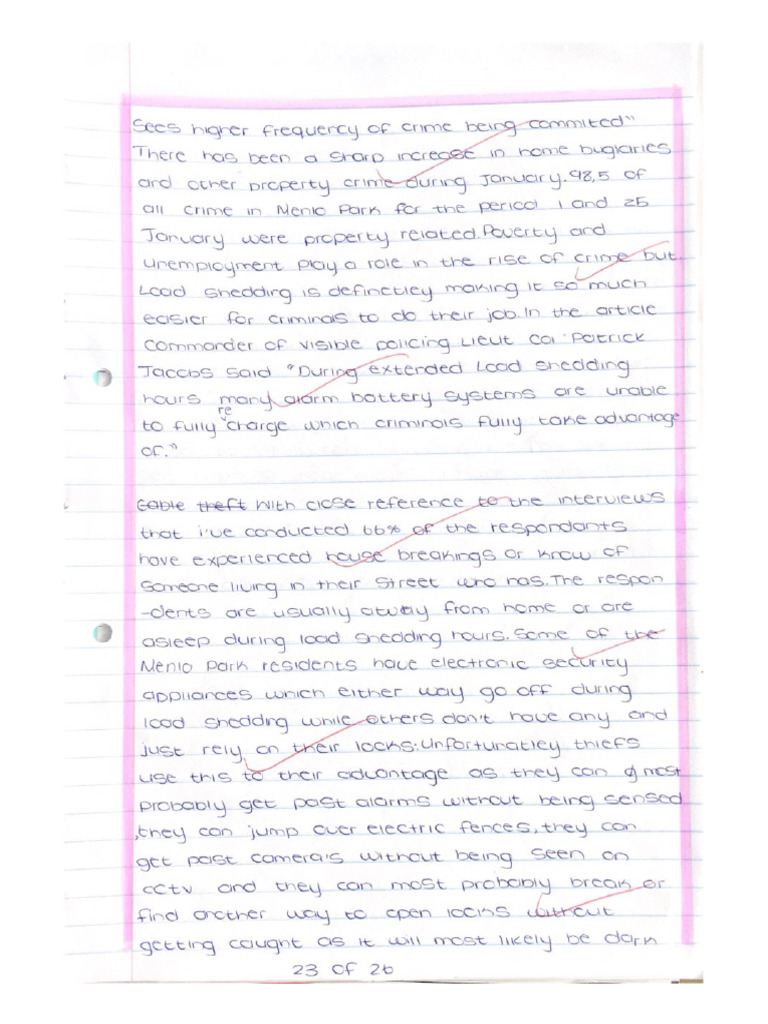 Sees higher frequency of crime being commited"
There has been a sharp increase in home buglaries
and other property crime during January. 98,5 of
all crime in Menlo Park for the period 1 and 25
January were property related. Poverty and
unemployment play a role in the rise of crime but
Load shedding is definctley making it so much
easier for criminals to do their job. In the article
commander of visible policing Lieut Col Patrick
Jacobs said "During extended Load shedding
hours many alarm battery systems are unable
to fully recharge which criminals fully take advantage
of."
Cable theft With close reference to the interviews
that i've conducted 66% of the respondants
have experienced house breakings or know of
someone living in their street who has. The respon
-dents are usually away from home or are
asleep during load shedding hours. Some of the
Menlo Park residents have electronic security
appliances which either way go off during
load shedding while others don't have any and
just rely on their locks. Unfortunatley thiefs
use this to their advantage as they can most
probably get past alarms without being sensed
, they can jump over electric fences, they can
get past camera's without being seen on
cctv and they can most probably break or
find another way to open locks without
getting caught as it will most likely be dark
23 of 26